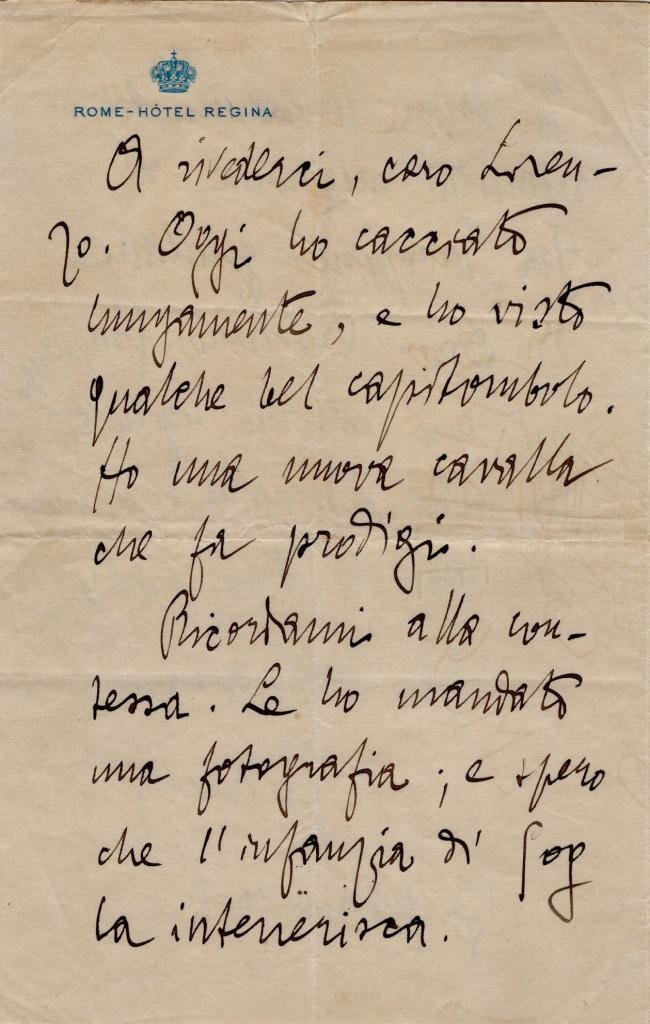 ROME-HÔTEL REGINA
A rivederci, caro Loren-
zo. Oggi ho cacciato
lungamente, e ho visto
qualche bel capitombolo.
Ho una nuova cavalla
che fa prodigi.
Ricordami alla con-
tessa. Le ho mandato
una fotografia; e spero
che l'infanzia di Gog
la intenerisca.